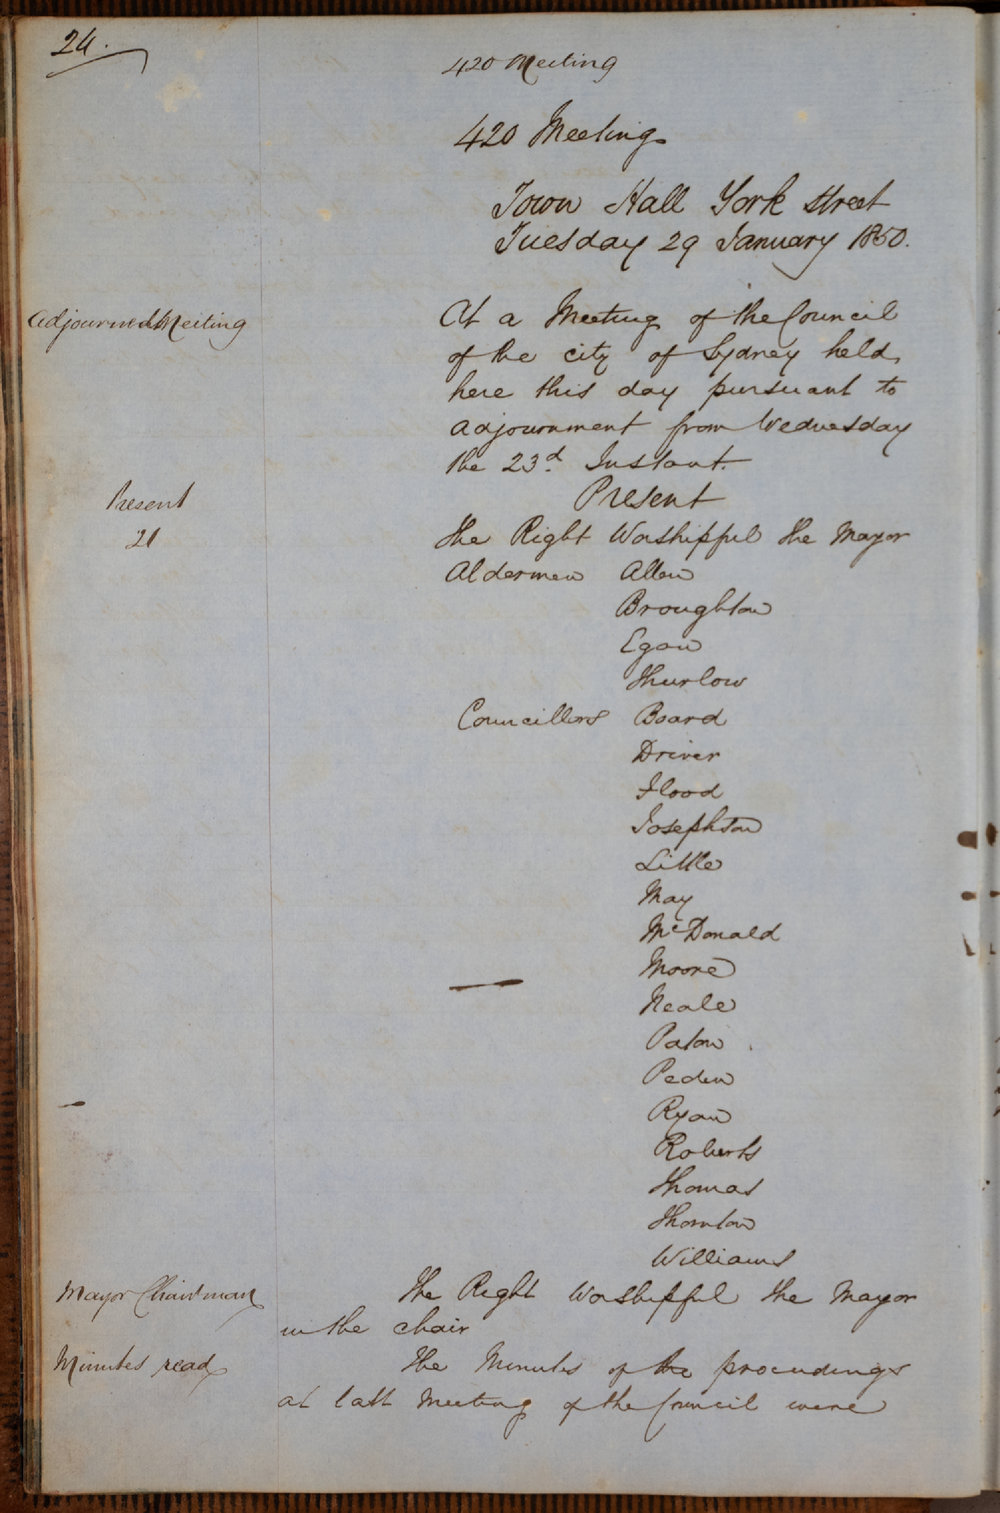 24.
420 Meeting
420 Meeting
Town Hall York Street
Tuesday 29 January 1850.
Adjourned Meeting
At a Meeting of the Council
of the city of Sydney held
here this day pursuant to
adjournment from Wednesday
the 23d. Instant.
Present
21
Present
The Right Worshipful the Mayor
Aldermen Allen
Broughton
Egan
Thurlow
Councillors Board
Driver
Flood
Josephson
Little
May
McDonald
Moore
Neale
Paton
Peden
Ryan
Roberts
Thomas
Thornton
Williams
Mayor Chairman
The Right Worshipful the Mayor
in the chair
Minutes read
The Minutes of the proceedings
at last Meeting of the Council were